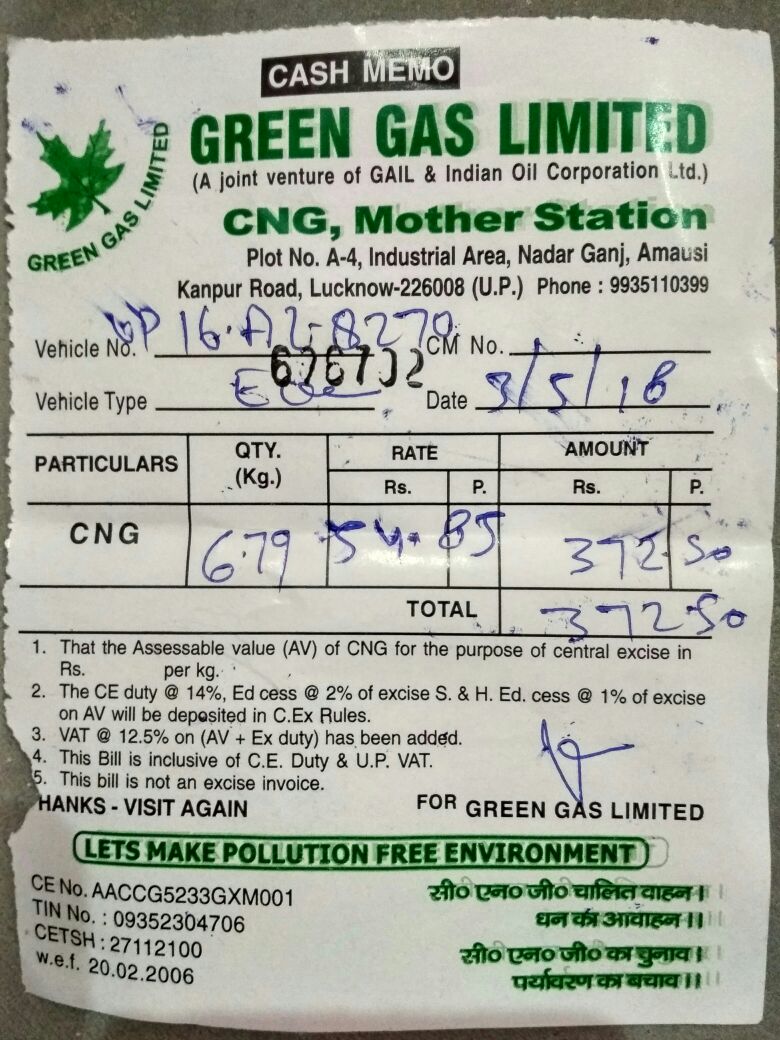 CASH MEMO
GREEN GAS LIMITED
GREEN GAS LIMITED
(A joint venture of GAIL & Indian Oil Corporation Ltd.)
CNG, Mother Station
Plot No. A-4, Industrial Area, Nadar Ganj, Amausi
Kanpur Road, Lucknow-226008 (U.P.) Phone : 9935110399
Vehicle No. UP 16.AZ-8270 CM No.
626702
Vehicle Type Date 3/5/18
PARTICULARS QTY. (Kg.) RATE AMOUNT
Rs. P. Rs. P.
CNG 6.79 54.85 372.50
TOTAL 372.50
1. That the Assessable value (AV) of CNG for the purpose of central excise in
Rs. per kg.
2. The CE duty @ 14%, Ed cess @ 2% of excise S. & H. Ed. cess @ 1% of excise
on AV will be deposited in C.Ex Rules.
3. VAT @ 12.5% on (AV + Ex duty) has been added.
4. This Bill is inclusive of C.E. Duty & U.P. VAT.
5. This bill is not an excise invoice.
HANKS - VISIT AGAIN FOR GREEN GAS LIMITED
LETS MAKE POLLUTION FREE ENVIRONMENT
CE No. AACCG5233GXM001
TIN No. : 09352304706
CETSH : 27112100
w.e.f. 20.02.2006
सी० एन० जी० चालित वाहन।
धन का आवाहन।।
सी० एन० जी० का चुनाव।
पर्यावरण का बचाव।।